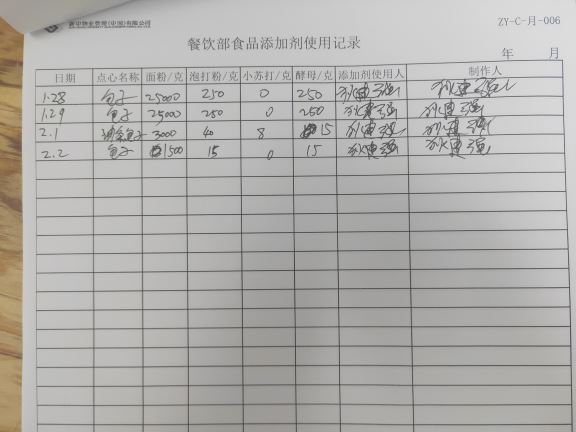 物业管理(中国)有限公司
ZY-C-月-006
餐饮部食品添加剂使用记录
年 月
日期 点心名称 面粉/克 泡打粉/克 小苏打/克 酵母/克 添加剂使用人 制作人
1.28 包子 25000 250 0 250 孙建强 孙建强
1.29 包子 25000 250 0 250 孙建强 孙建强
2.1 3000 40 8 15 孙建强 孙建强
2.2 包子 1500 15 0 15 孙建强 孙建强